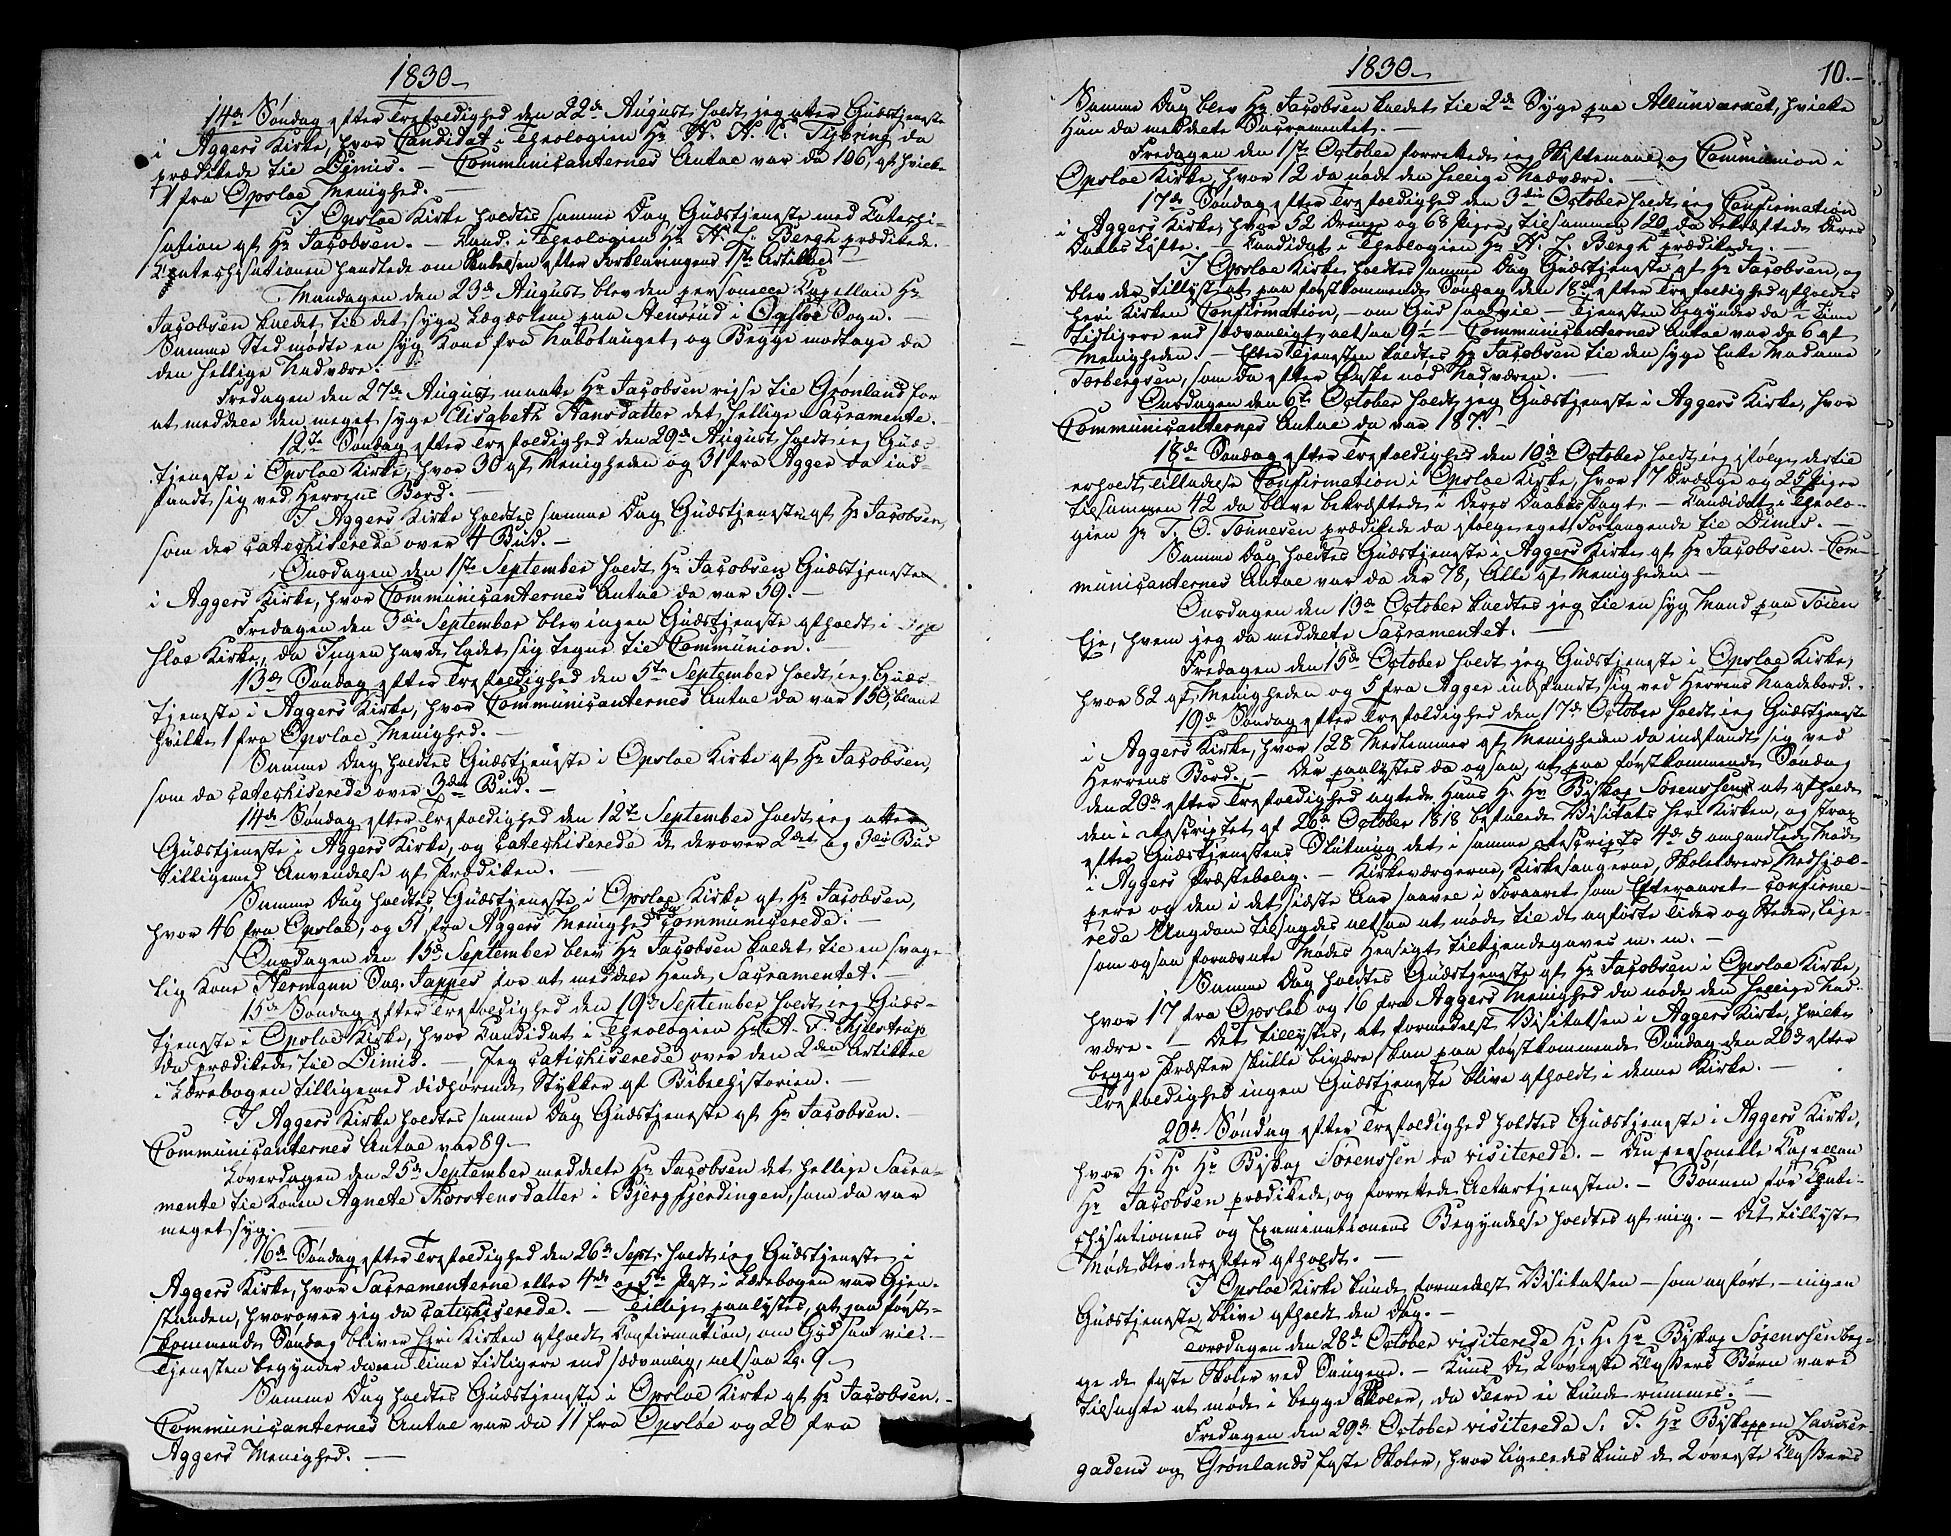 1830
14de Søndag efter Trefoldighed den 22de August holdt jeg atter Gudstjeneste
i Aggers Kirke, hvor Candidat i Theologien Hr H. H. C. da
prædikede til Dimis. — Communicanternes Antal var da 106, af hvilke
1 fra Opsloe Menighed. —
I Opsloe Kirke holdtes samme Dag Gudstjeneste med Catechi-
sation af Hr Jacobsen. — Kand. i Theologien Hr H. J. Bergh prædikede.
Catechisationen handlede om Skabelsen efter Forklaringens 1ste Artikkel
Mandagen den 23de August blev den personelle Capellan Hr
Jacobsen kaldet til det syge paa i Opsloe Sogn. —
Samme Sted mødte en syg Kone fra og Begge modtoge da
den hellige Nadvere. —
Fredagen den 27de August maatte Hr Jacobsen reise til Grønland for
at meddele den meget syge Elisabeth Hansdatter det hellige Sacramente. —
12te Søndag efter Trefoldighed den 29de August holdt jeg Guds-
tjeneste i Opsloe Kirke, hvor 30 af Menigheden og 31 fra Agger da ind-
fandt sig ved Herrens Bord. —
I Aggers Kirke holdtes samme Dag Gudstjeneste af Hr Jacobsen,
som der catechiserede over 4 Bud. —
Onsdagen den 1ste September holdt Hr Jacobsen Gudstjeneste
i Aggers Kirke, hvor Communicanternes Antal da var 59. —
Fredagen den 3die September blev ingen Gudstjeneste afholdt i Op-
sloe Kirke, da Ingen havde ladet sig tegne til Communion. —
13de Søndag efter Trefoldighed den 5te September holdt jeg Guds-
tjeneste i Aggers Kirke, hvor Communicanternes Antal da var 150, blant
hvilke 1 fra Opsloe Menighed. —
Samme Dag holdtes Gudstjeneste i Opsloe Kirke af Hr Jacobsen,
som da catechiserede over 3die Bud. —
14de Søndag efter Trefoldighed den 12te September holdt jeg atter
Gudstjeneste i Aggers Kirke, og catechiserede der over 2det og 3die Bud
tilligemed Anvendelse af Prædiken. —
Samme Dag holdtes Gudstjeneste i Opsloe Kirke af Hr Jacobsen,
hvor 46 fra Opsloe, og 51 fra Aggers Menighed da communicerede. —
Onsdagen den 15de September blev Hr Jacobsen kaldet til en svage-
lig Kone Hermann Sag. Jappes for at meddele Hende Sacramentet. —
15de Søndag efter Trefoldighed den 19de September holdt jeg Guds-
tjeneste i Opsloe Kirke, hvor Kandidat i Theologien Hr A. F.
da prædikede til Dimis. — Jeg catechiserede over den 2den Artikkel
i Lærebogen tilligemed didhørende Stykker af Bibelhistorien. —
I Aggers Kirke holdtes samme Dag Gudstjeneste af Hr Jacobsen. —
Communicanternes Antal var 89 —
Løverdagen den 25de September meddelte Hr Jacobsen det hellige Sacra-
mente til Konen Agnete Thorstensdatter i Bjergfjerdingen, som da var
meget syg. —
16de Søndag efter Trefoldighed den 26de Septr holdt jeg Gudstjeneste i
Aggers Kirke, hvor Sacramenterne eller 4de og 5te Part i Lærebogen var Gjen-
standen, hvorover jeg da catechiserede. — Tillige paalystes, at paa først-
kommende Søndag bliver her i Kirken afholdt Confirmation, om Gud saa vil. —
Tjenesten begynder da en Time tidligere end sædvanlig, altsaa Kl. 9 —
Samme Dag holdtes Gudstjeneste i Opsloe Kirke af Hr Jacobsen. —
Communicanternes Antal var da 11 fra Opsloe og 20 fra
Aggers Menighed. —
1830
10. —
Samme Dag blev Hr Jacobsen kaldet til 2de Syge paa Allunværket, hvilke
Han da meddelte Sacramentet. —
Fredagen den 1ste October forrettede jeg Skriftemaal og Communion i
Opsloe Kirke, hvor 12 da nøde den hellige Nadvere. —
17de Søndag efter Trefoldighed den 3die October holdt jeg Confirmation
i Aggers Kirke, hvor 52 Drenge og 68 Piger, tilsammen 120 da bekræftede deres
Daabs Løfte. — Kandidat i Theologien Hr H. J. Bergh prædikede. —
I Opsloe Kirke holdtes samme Dag Gudstjeneste af Hr Jacobsen, og
blev der tillyst, at paa førstkommende Søndag den 18de efter Trefoldighed afholdes
her i Kirken Confirmation, — om Gud saa vil — Tjenesten begynder da 1 Time
tidligere end sædvanligt, altsaa 9 — Communicanternes Antal var da 6 af
Menigheden. — Efter Tjenesten kaldtes Hr Jacobsen til den syge Enke Madame
Torbergsen, som da efter Ønske nød Nadveren. —
Onsdagen den 6te October holdt jeg Gudstjeneste i Aggers Kirke, hvor
Communicanternes Antal da var 187. —
18de Søndag efter Trefoldighed den 10de October holdt jeg ifølge dertil
erholdt Tilladelse Confirmation i Opsloe Kirke, hvor 17 Drenge og 25 Piger
tilsammen 42 da bleve bekræftede i deres Daabs Pagt — Candidat i Theolo-
gien Hr T. O. Tønnesen prædikede da efter eget Forlangende til Dimis. —
Samme Dag holdtes Gudstjeneste i Aggers Kirke af Hr Jacobsen. — Com-
municanternes Antal var da der 78, Alle af Menigheden —
Onsdagen den 13de October kaldtes jeg til en syg Mand paa Tøien
Eje, hvem jeg da meddelte Sacramentet. —
Fredagen den 15de October holdt jeg Gudstjeneste i Opsloe Kirke,
hvor 82 af Menigheden og 5 fra Agger indfandt sig ved Herrens Naadebord. —
19de Søndag efter Trefoldighed den 17de October holdt jeg Gudstjeneste
i Aggers Kirke, hvor 128 Medlemmer af Menigheden da indfandt sig ved
Herrens Bord. — Der paalystes da ogsaa, at paa førstkommende Søndag
den 20de efter Trefoldighed agtede Hans H. Hr Biskop Sørenssen at afholde
den i Rescriptet af 26de October 1818 befalede Visitats her i Kirken, og strax
efter Gudstjenestens Slutning det i samme Rescripts 4de § omhandlede Møde
i Aggers Præstebolig. — Kirkeværgerne, Kirkesangerne, Skolelærere, Medhjæl-
pere og den i det sidste Aar saavel i Foraaret som Efteraaret confirme-
rede Ungdom tilsagdes altsaa at møde til de anførte Tider og Steder, lige-
som ogsaa fornævnte Mødes Hensigt tilkjendegaves m. m. —
Samme Dag holdtes Gudstjeneste af Hr Jacobsen i Opsloe Kirke,
hvor 17 fra Opsloe og 16 fra Aggers Menighed da nøde den hellige Nad-
vere. — Det tillystes, at formedelst Visitatsen i Aggers Kirke, hvilke
begge Præster skulle bivære, kan paa førstkommende Søndag den 20de efter
Trefoldighed ingen Gudstjeneste blive afholdt i denne Kirke. —
20de Søndag efter Trefoldighed holdtes Gudstjeneste i Aggers Kirke,
hvor H. H. Hr Biskop Sørenssen da visiterede. — Den personelle Capellan
Hr Jacobsen prædikede, og forrettede Altartjenesten. — Bønnen før Cate-
chisationens og Examinationens Begyndelse holdtes af mig. — Det tillyste
Møde blev derefter afholdt. —
I Opsloe Kirke kunde formedelst Visitatsen — som anført — ingen
Gudstjeneste blive afholdt den Dag. —
Torsdagen den 28de October visiterede H. H. Hr Biskop Sørenssen beg-
ge de faste Skoler ved Sangene. — Kuns de 2 øverste Classers Børn vare
tilsagte at møde i begge Skoler, da Flere ei kunde rummes. —
Fredagen den 29de October visiterede S. T. Hr Biskoppen
gadens og Grønlands faste Skoler, hvor ligeledes kuns de 2 øverste Classers